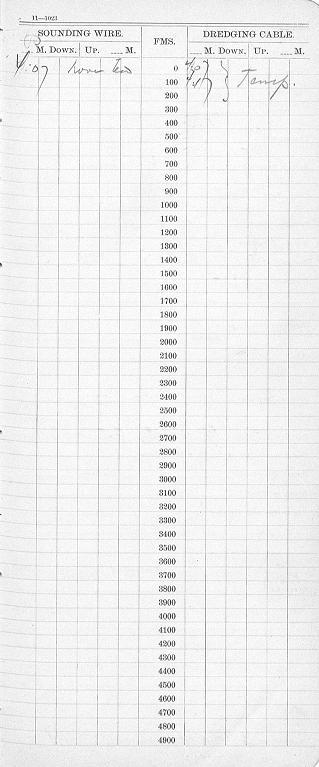 11—1023
SOUNDING WIRE. FMS. DREDGING CABLE.
M. DOWN. UP. M. M. DOWN. UP. M.
0
100 Temp.
200
300
400
500
600
700
800
900
1000
1100
1200
1300
1400
1500
1600
1700
1800
1900
2000
2100
2200
2300
2400
2500
2600
2700
2800
2900
3000
3100
3200
3300
3400
3500
3600
3700
3800
3900
4000
4100
4200
4300
4400
4500
4600
4700
4800
4900